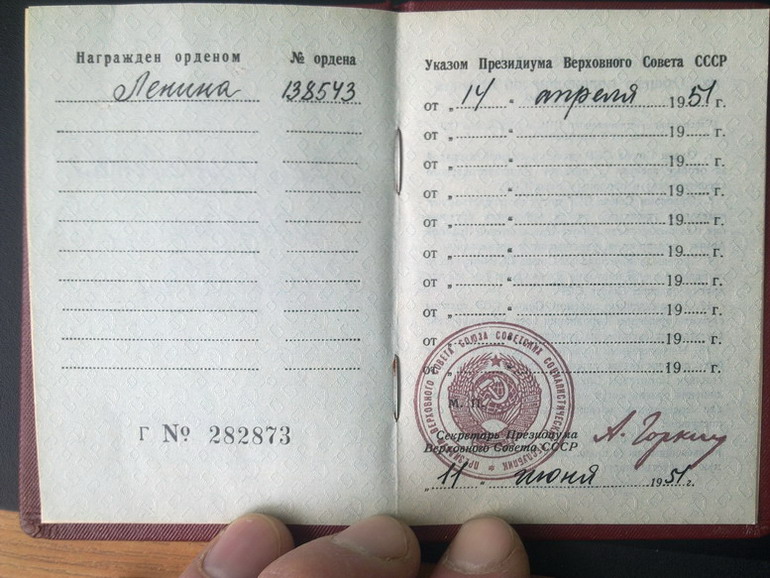 Награжден орденом
№ ордена
Ленина
138543
Г № 282873
Указом Президиума Верховного Совета СССР
от „ 14 “ апреля 1951 г.
от „ “ 19 г.
от „ “ 19 г.
от „ “ 19 г.
от „ “ 19 г.
от „ “ 19 г.
от „ “ 19 г.
от „ “ 19 г.
от „ “ 19 г.
от „ “ 19 г.
М. П.
Секретарь Президиума
Верховного Совета СССР
А. Горкин
„ 11 “ июня 1951 г.
ПРЕЗИДИУМ ВЕРХОВНОГО СОВЕТА СОЮЗА СОВЕТСКИХ СОЦИАЛИСТИЧЕСКИХ РЕСПУБЛИК